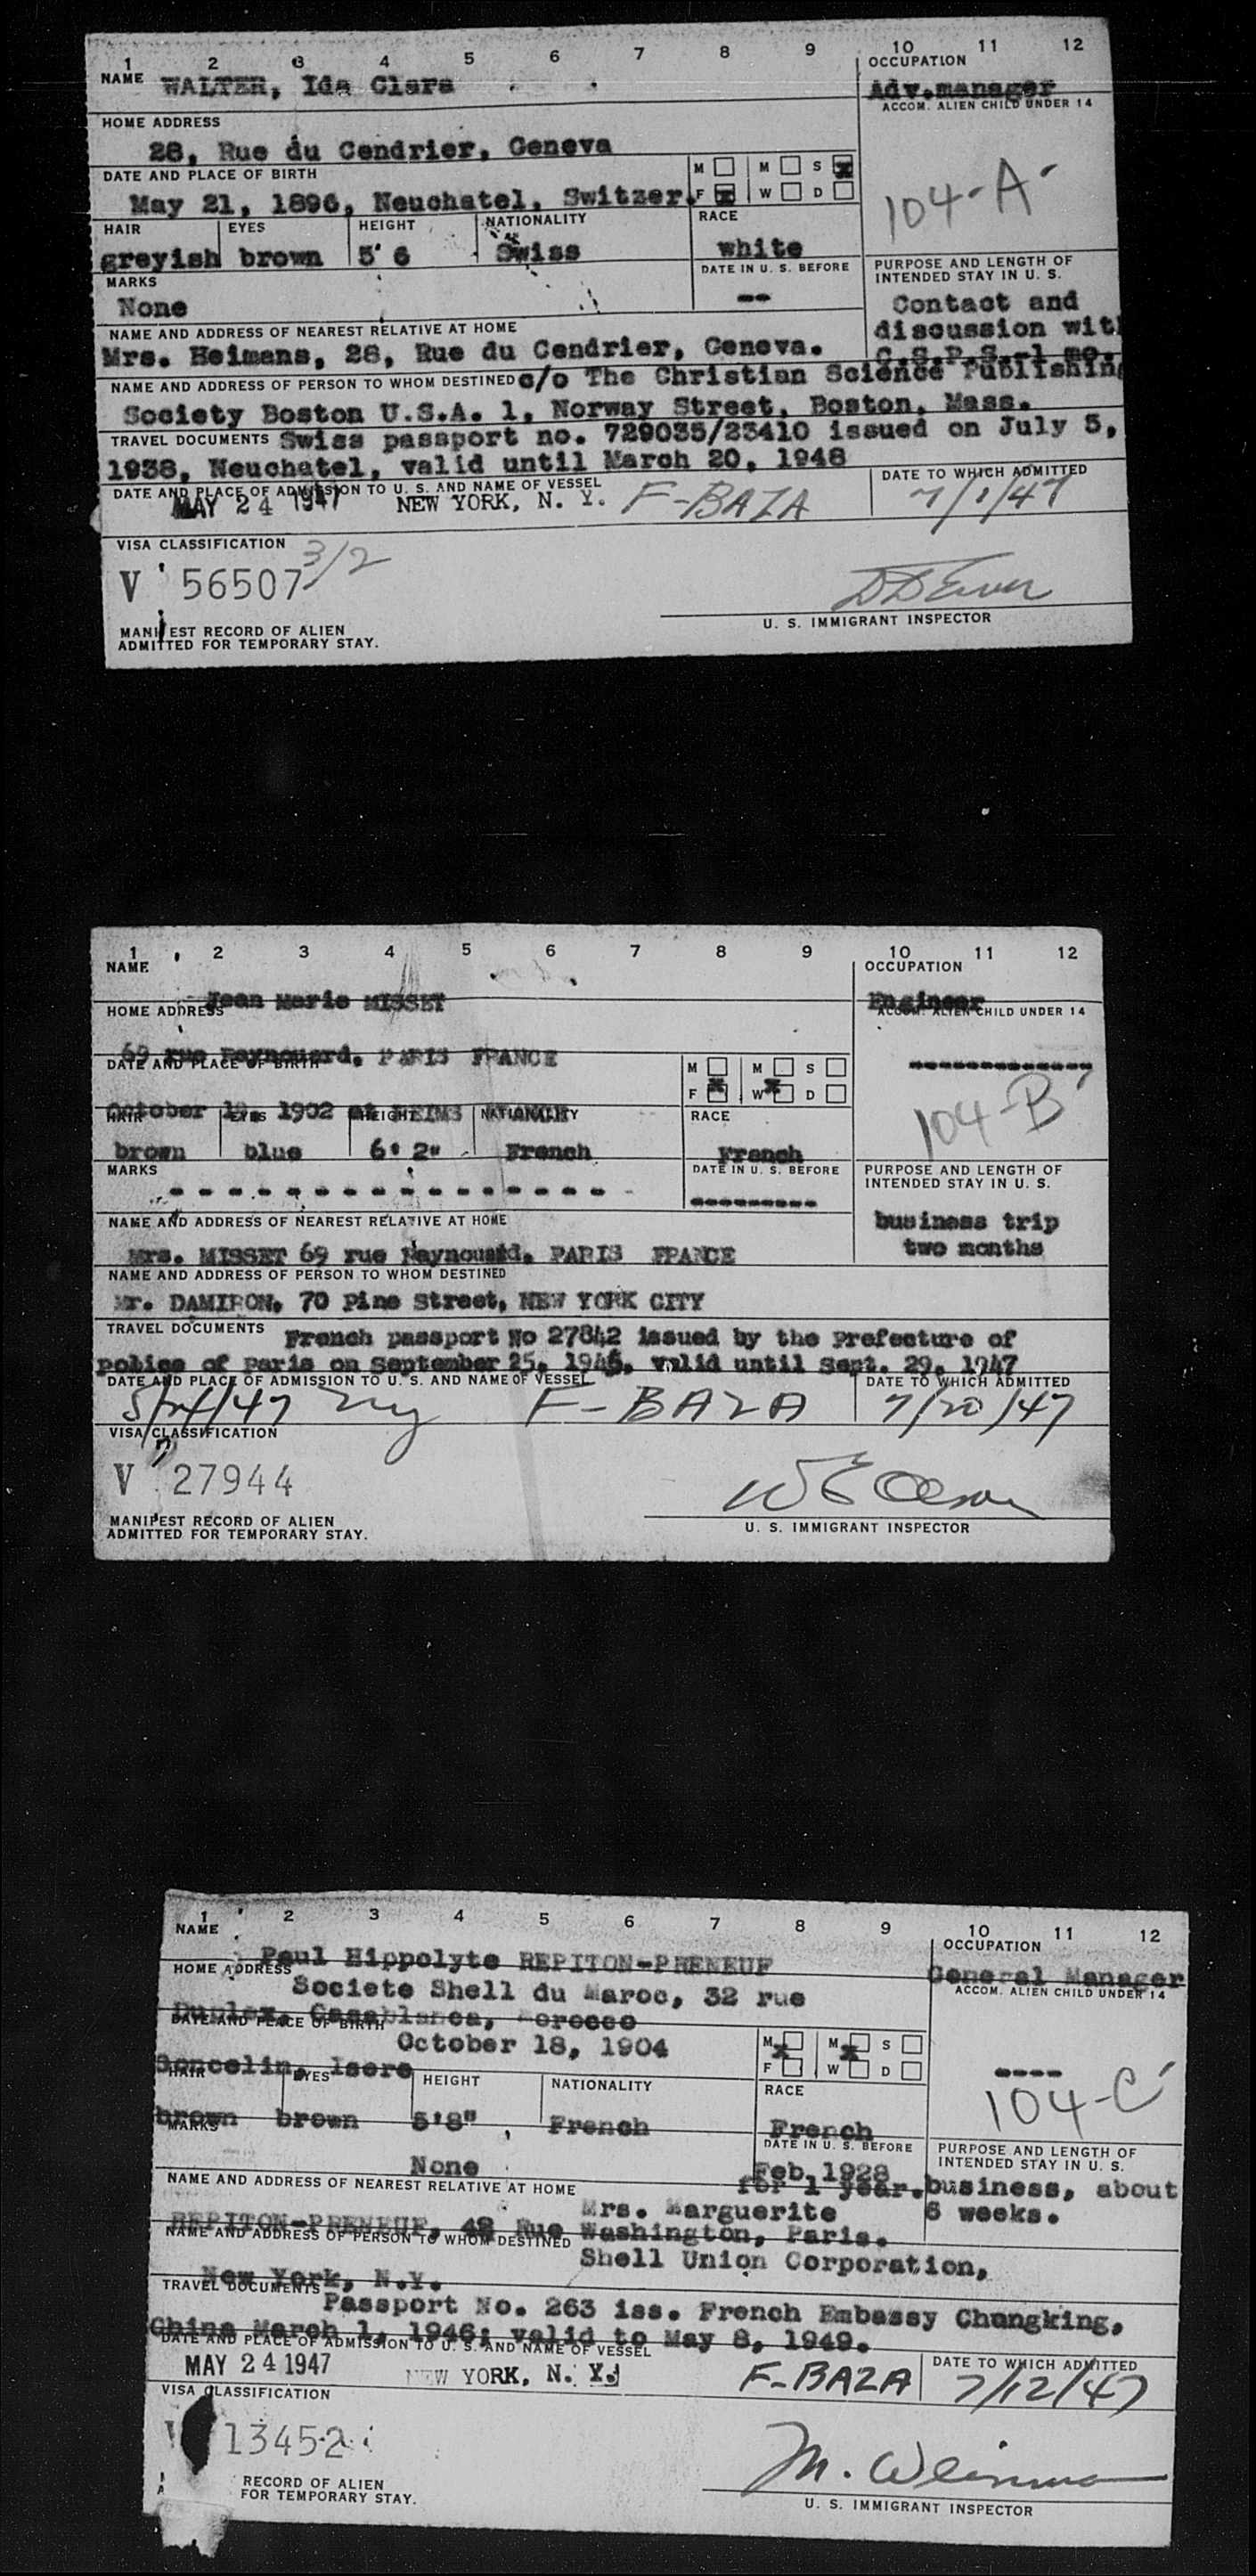 1 2 3 4 5 6 7 8 9 10 11 12
NAME WALTER, Ida Clara
OCCUPATION
Adv.manager
ACCOM. ALIEN CHILD UNDER 14
HOME ADDRESS
28, Rue du Cendrier, Geneva
DATE AND PLACE OF BIRTH
M M S X
May 21, 1896, Neuchatel, Switzer.
F X W D
104-A
HAIR EYES HEIGHT NATIONALITY RACE
greyish brown 5' 6 Swiss white
MARKS
DATE IN U. S. BEFORE
None --
PURPOSE AND LENGTH OF
INTENDED STAY IN U. S.
Contact and
discussion with
C.S.P.S.-1 mo.
NAME AND ADDRESS OF NEAREST RELATIVE AT HOME
Mrs. Heimans, 28, Rue du Cendrier, Geneva.
NAME AND ADDRESS OF PERSON TO WHOM DESTINED c/o The Christian Science Publishing
Society Boston U.S.A. 1, Norway Street, Boston, Mass.
TRAVEL DOCUMENTS Swiss passport no. 729035/23410 issued on July 5,
1938, Neuchatel, valid until March 20, 1948
DATE AND PLACE OF ADMISSION TO U. S. AND NAME OF VESSEL
DATE TO WHICH ADMITTED
MAY 24 1947 NEW YORK, N. Y. F-BAZA 7/1/47
VISA CLASSIFICATION
3/2
V 56507
U. S. IMMIGRANT INSPECTOR
MANIFEST RECORD OF ALIEN
ADMITTED FOR TEMPORARY STAY.
1 2 3 4 5 6 7 8 9 10 11 12
NAME
OCCUPATION
Jean Marie MISSET
Engineer
HOME ADDRESS
ACCOM. ALIEN CHILD UNDER 14
69 rue Raynouard, PARIS FRANCE
DATE AND PLACE OF BIRTH
M M S
F X W X D
October 1902 at REIMS
104-B
HAIR EYES HEIGHT NATIONALITY RACE
brown blue 6' 2" French French
MARKS
DATE IN U. S. BEFORE
PURPOSE AND LENGTH OF
INTENDED STAY IN U. S.
business trip
two months
NAME AND ADDRESS OF NEAREST RELATIVE AT HOME
Mrs. MISSET 69 rue Raynouard, PARIS FRANCE
NAME AND ADDRESS OF PERSON TO WHOM DESTINED
Mr. DAMIRON, 70 Pine Street, NEW YORK CITY
TRAVEL DOCUMENTS French passport No 27842 issued by the Prefecture of
police of Paris on September 25, 1945, valid until Sept. 29, 1947
DATE AND PLACE OF ADMISSION TO U. S. AND NAME OF VESSEL
DATE TO WHICH ADMITTED
5/24/47 ny F-BAZA 7/20/47
VISA CLASSIFICATION
V 27944
W E Olson
U. S. IMMIGRANT INSPECTOR
MANIFEST RECORD OF ALIEN
ADMITTED FOR TEMPORARY STAY.
1 2 3 4 5 6 7 8 9 10 11 12
NAME
OCCUPATION
Paul Hippolyte REPITON-PRENEUF
General Manager
HOME ADDRESS
ACCOM. ALIEN CHILD UNDER 14
Societe Shell du Maroc, 32 rue
Dupleix, Casablanca, Morocco
DATE AND PLACE OF BIRTH
October 18, 1904
M X M X S
F W D
Goncelin, Isere
----
104-C
HAIR EYES HEIGHT NATIONALITY RACE
brown brown 5'8" French French
MARKS
DATE IN U. S. BEFORE
None
Feb. 1928
for 1 year.
PURPOSE AND LENGTH OF
INTENDED STAY IN U. S.
business, about
6 weeks.
NAME AND ADDRESS OF NEAREST RELATIVE AT HOME
Mrs. Marguerite
REPITON-PRENEUF, 48 Rue Washington, Paris.
NAME AND ADDRESS OF PERSON TO WHOM DESTINED
Shell Union Corporation,
New York, N.Y.
TRAVEL DOCUMENTS
Passport No. 263 iss. French Embassy Chungking,
China March 1, 1946; valid to May 8, 1949.
DATE AND PLACE OF ADMISSION TO U. S. AND NAME OF VESSEL
DATE TO WHICH ADMITTED
MAY 24 1947 NEW YORK, N. Y. F-BAZA 7/12/47
VISA CLASSIFICATION
13452
M. Weinman
U. S. IMMIGRANT INSPECTOR
RECORD OF ALIEN
FOR TEMPORARY STAY.